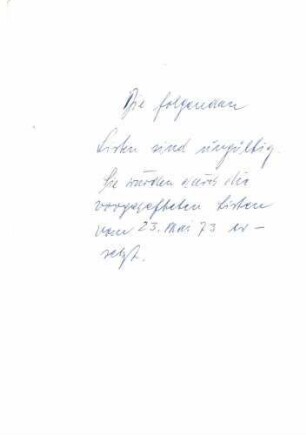 Die folgenden
Listen sind ungültig.
Sie wurden durch die
vorgehefteten Listen
vom 23. Mai 73 er-
setzt.